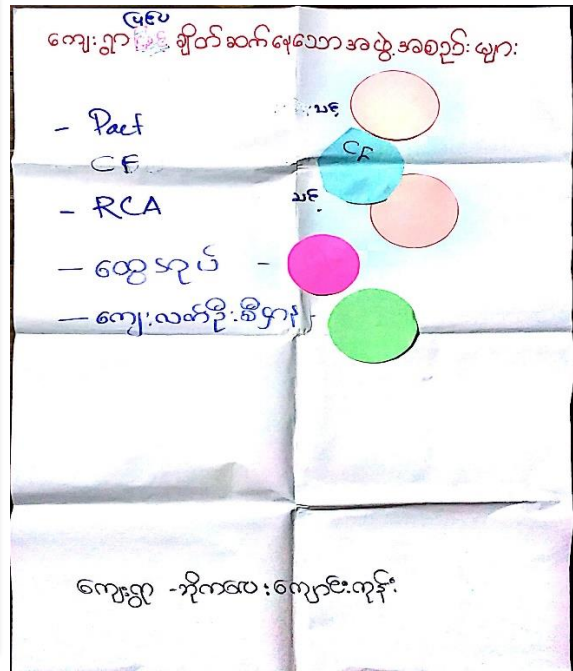 ပြင်ပ
ကျေးရွာ ချိတ်ဆက်နေသော အဖွဲ့အစည်းများ
- Pact
သင့်
CF
CF
- RCA
သင့်
- ထွေအုပ် -
- ကျေးလက်ဦးစီးဌာန -
ကျေးရွာ - ဘိုကလေးကျောင်းကုန်း